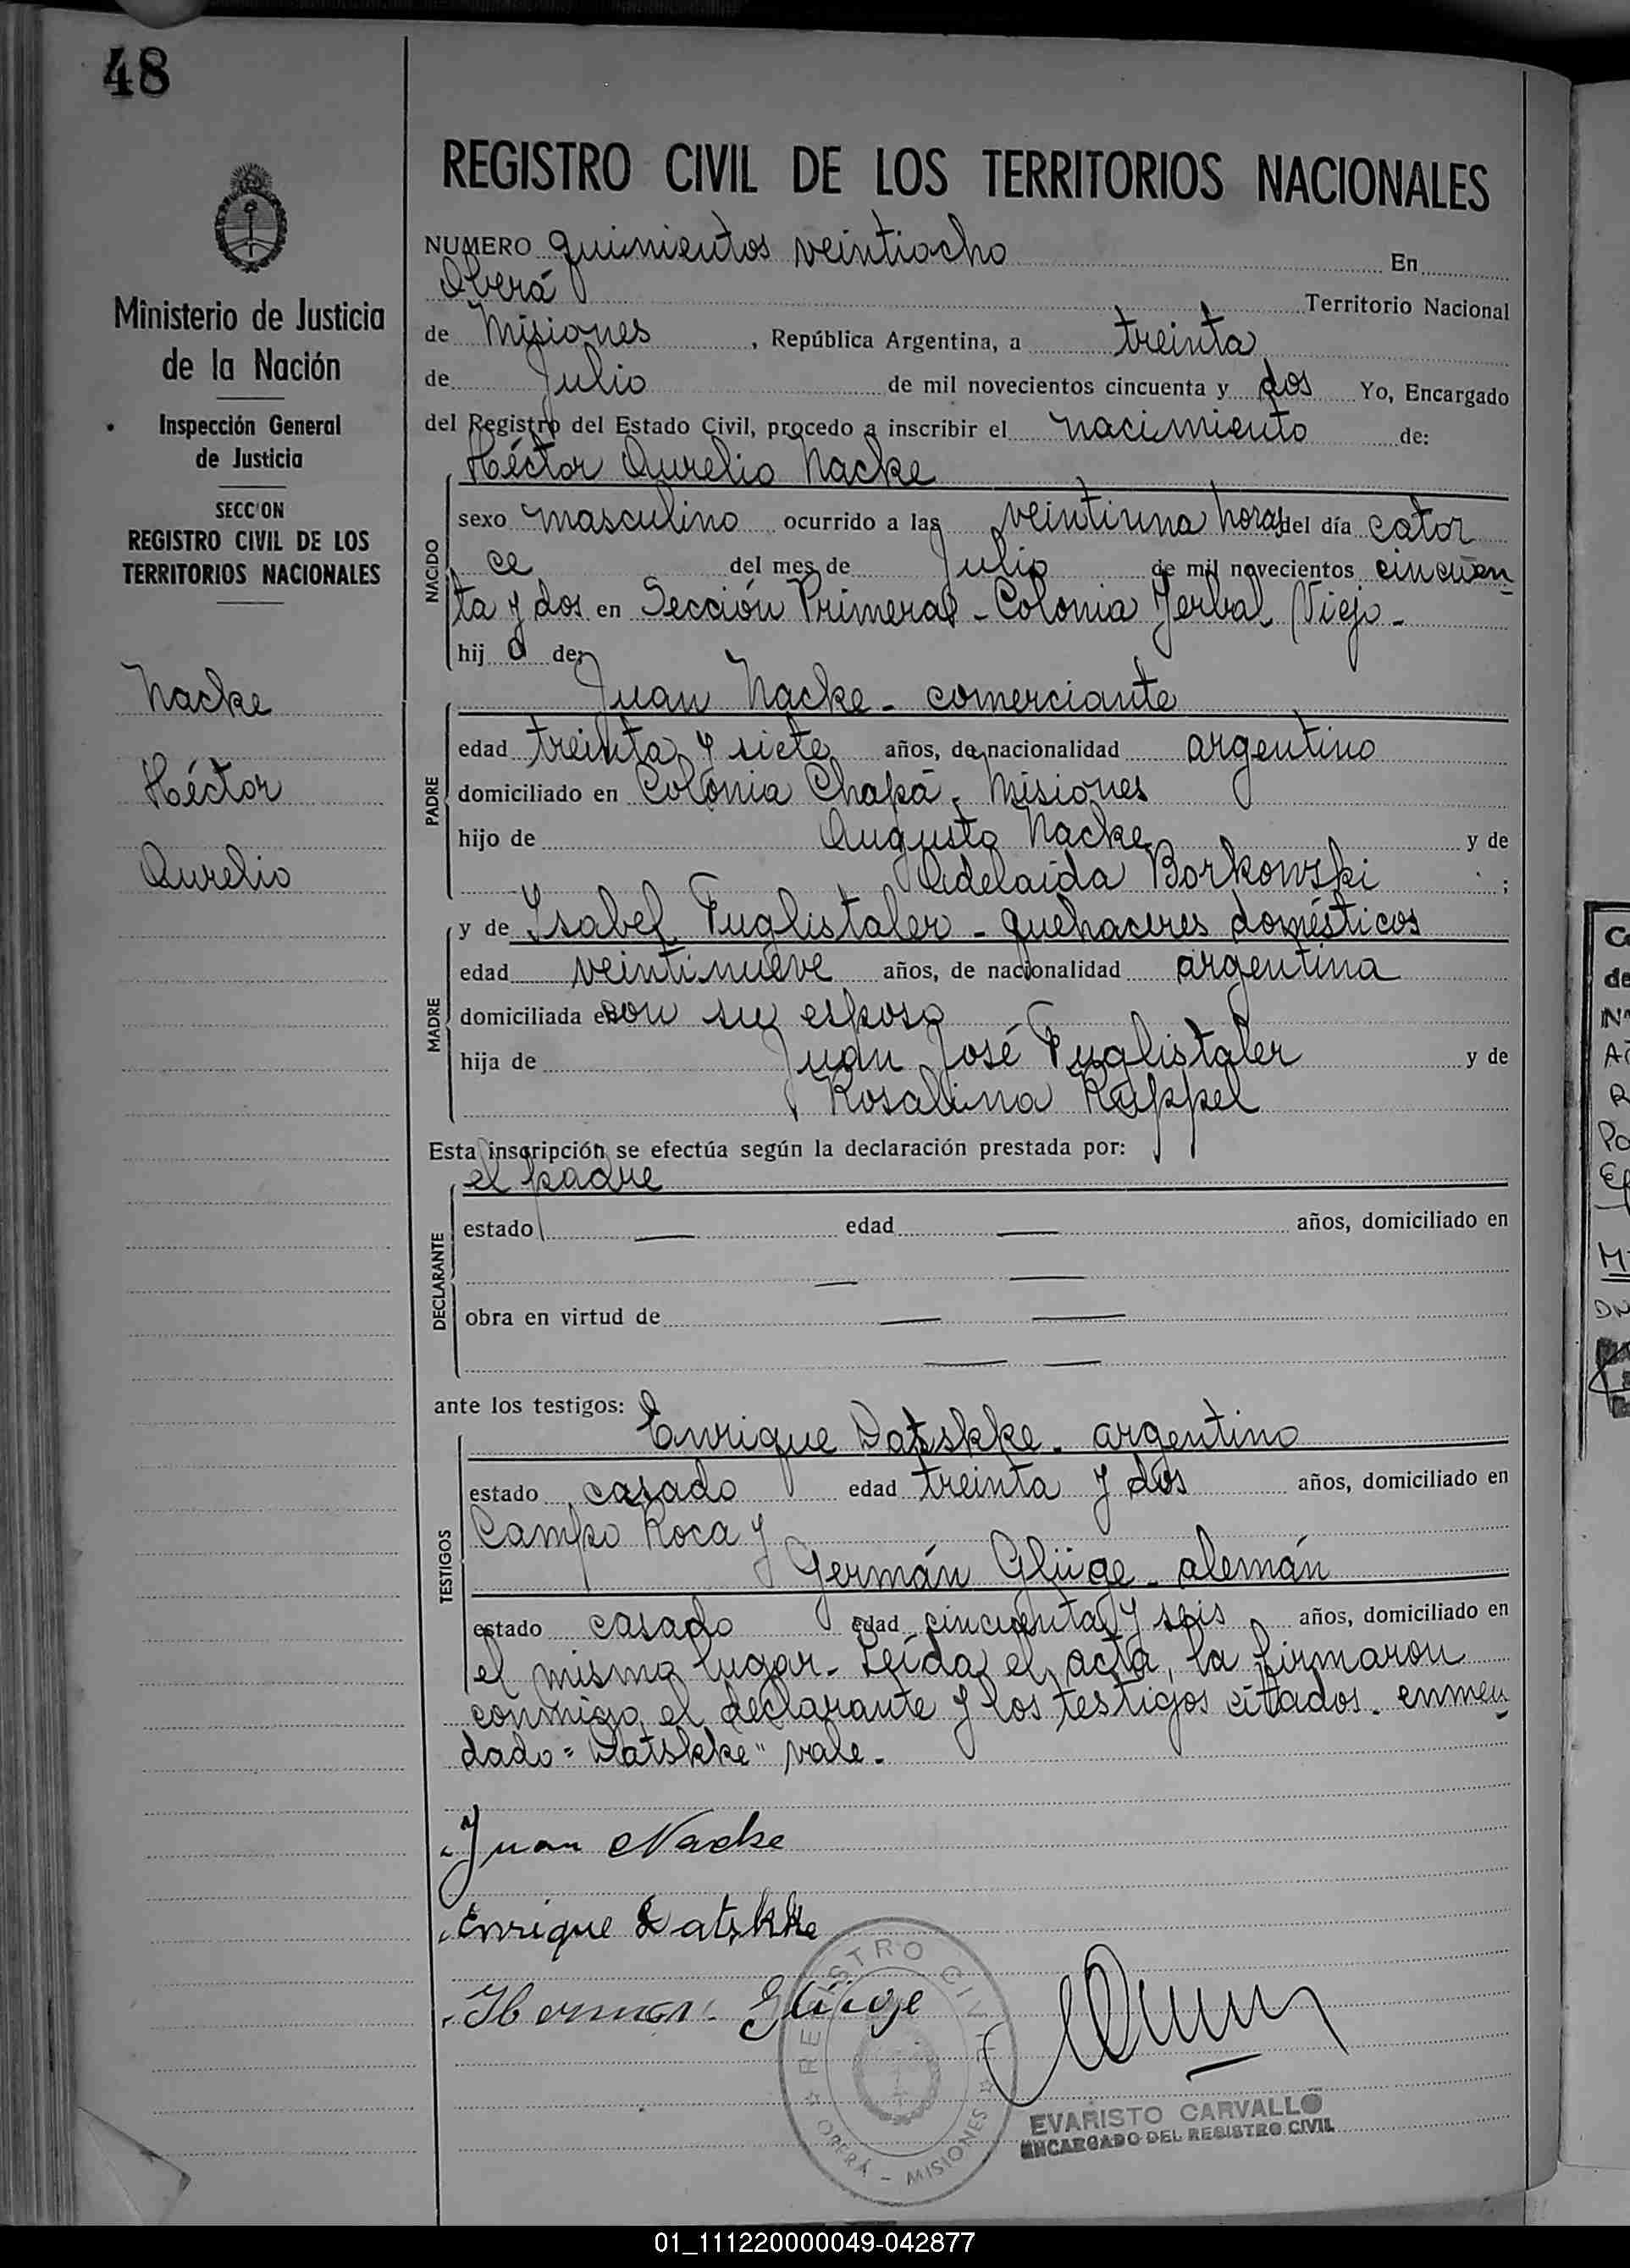 48
Ministerio de Justicia
de la Nación
Inspección General
de Justicia
SECCION
REGISTRO CIVIL DE LOS
TERRITORIOS NACIONALES
Nacke
Héctor
Aurelio
REGISTRO CIVIL DE LOS TERRITORIOS NACIONALES
NUMERO quinientos veintiocho En
Oberá Territorio Nacional
de Misiones, República Argentina, a treinta
de Julio de mil novecientos cincuenta y dos Yo, Encargado
del Registro del Estado Civil, procedo a inscribir el nacimiento de:
Héctor Aurelio Nacke
NACIDO
sexo masculino ocurrido a las veintiuna horas del día cator
ce del mes de Julio de mil novecientos cincuen
ta y dos en Sección Primera - Colonia Yerbal Viejo -
hijo de:
Juan Nacke - comerciante
PADRE
edad treinta y siete años, de nacionalidad argentino
domiciliado en Colonia Chapá, Misiones
hijo de Augusto Nacke y de
Adelaida Borkowski ;
MADRE
y de Isabel Fuglistaler - quehaceres domésticos
edad veintinueve años, de nacionalidad argentina
domiciliada con su esposo
hija de Juan José Fuglistaler y de
Rosalina Ruppel
Esta inscripción se efectúa según la declaración prestada por:
el padre
DECLARANTE
estado — edad — años, domiciliado en
— —
obra en virtud de — —
— —
ante los testigos:
Enrique Datskke - argentino
TESTIGOS
estado casado edad treinta y dos años, domiciliado en
Campo Roca y
Germán Glüge - alemán
estado casado edad cincuenta y seis años, domiciliado en
el mismo lugar - Leída el acta, la firmaron
conmigo el declarante y los testigos citados. enmen
dado = "Datskke" vale.
Juan Nacke
Enrique Datskke
Herman Glüge
REGISTRO CIVIL
OBERÁ - MISIONES
EVARISTO CARVALLO
ENCARGADO DEL REGISTRO CIVIL
01_111220000049-042877